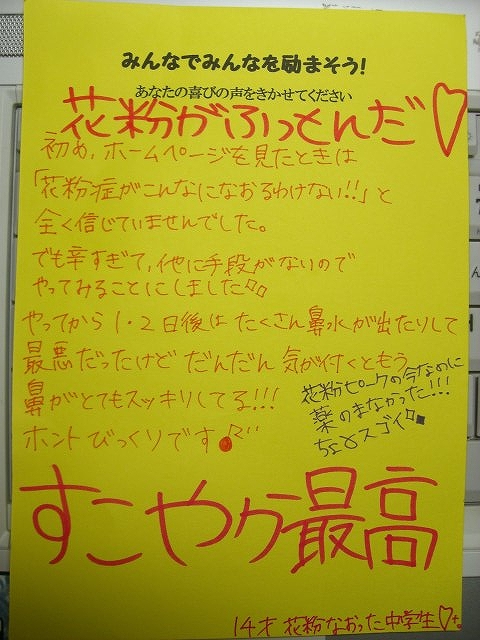 みんなでみんなを励まそう!
あなたの喜びの声をきかせてください
花粉がふっとんだ♡
初め、ホームページを見たときは
「花粉症がこんなになおるわけない!!」と
全く信じていませんでした。
でも辛すぎて、他に手段がないので
やってみることにしました
やってから1・2日後は たくさん鼻水が出たりして
最悪だったけど だんだん 気が付くともう
鼻がとてもスッキリしてる!!!
ホントびっくりです
花粉ピークの今なのに
薬のまなかった!!!
ちょとスゴイ
すこやか最高
14才 花粉なおった中学生♡